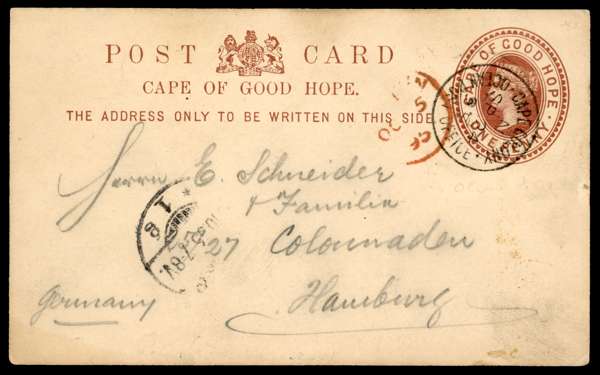 POST CARD
CAPE OF GOOD HOPE.
THE ADDRESS ONLY TO BE WRITTEN ON THIS SIDE.
OF GOOD HOPE
ONE
Herrn E. Schneider
& Familie
27 Colonnaden
Hamburg
Germany